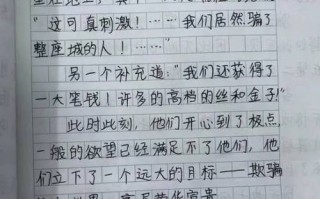 "这可真刺激!……我们居然骗了
整座城的人!……"
另一个补充道:"我们还获得了
一大笔钱!许多的高档的丝和金子!"
此时此刻,他们开心到了极点,
一般的欲望已经满足不了他们,他
们立下了一个远大的目标——欺骗